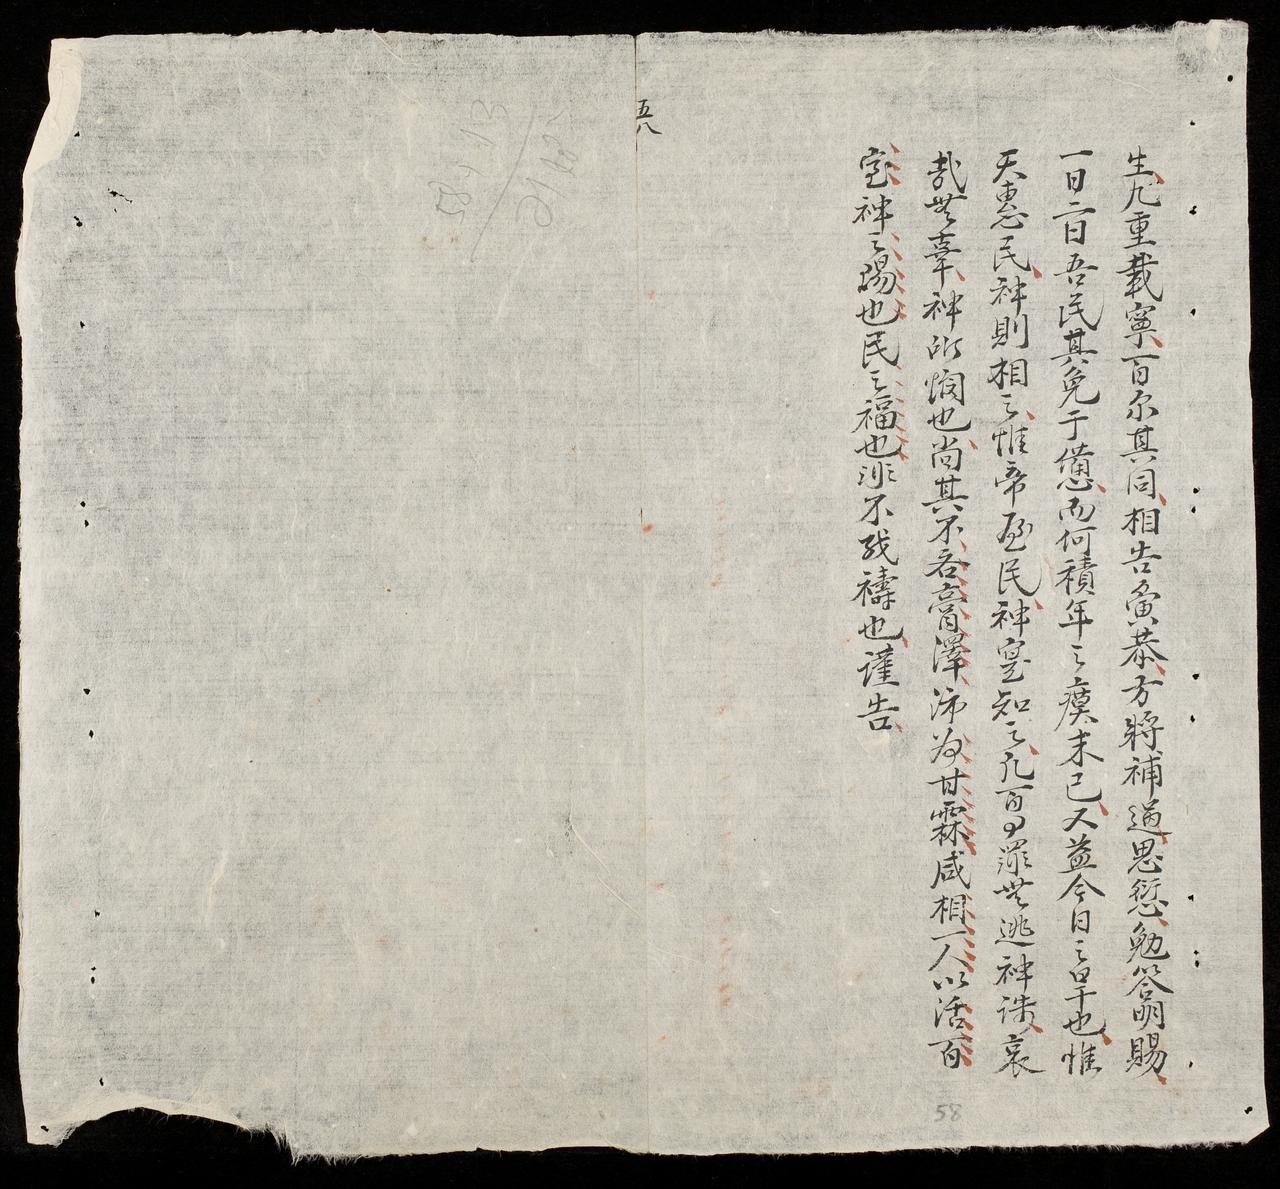 生凡重載寧百尔其同相告寅恭方將補過思愆勉答明賜
一日二日吾民其免于憊而何積年之瘼未已又益今日之旱也惟
天惠民神則相之惟帝辰民神寔知之凡百罪無逃神誅哀
哉無辜神所憫也尚其不吝膏澤沛為甘霖咸相一人以活百
室神之賜也民之福也非不致禱也謹告
五八
58